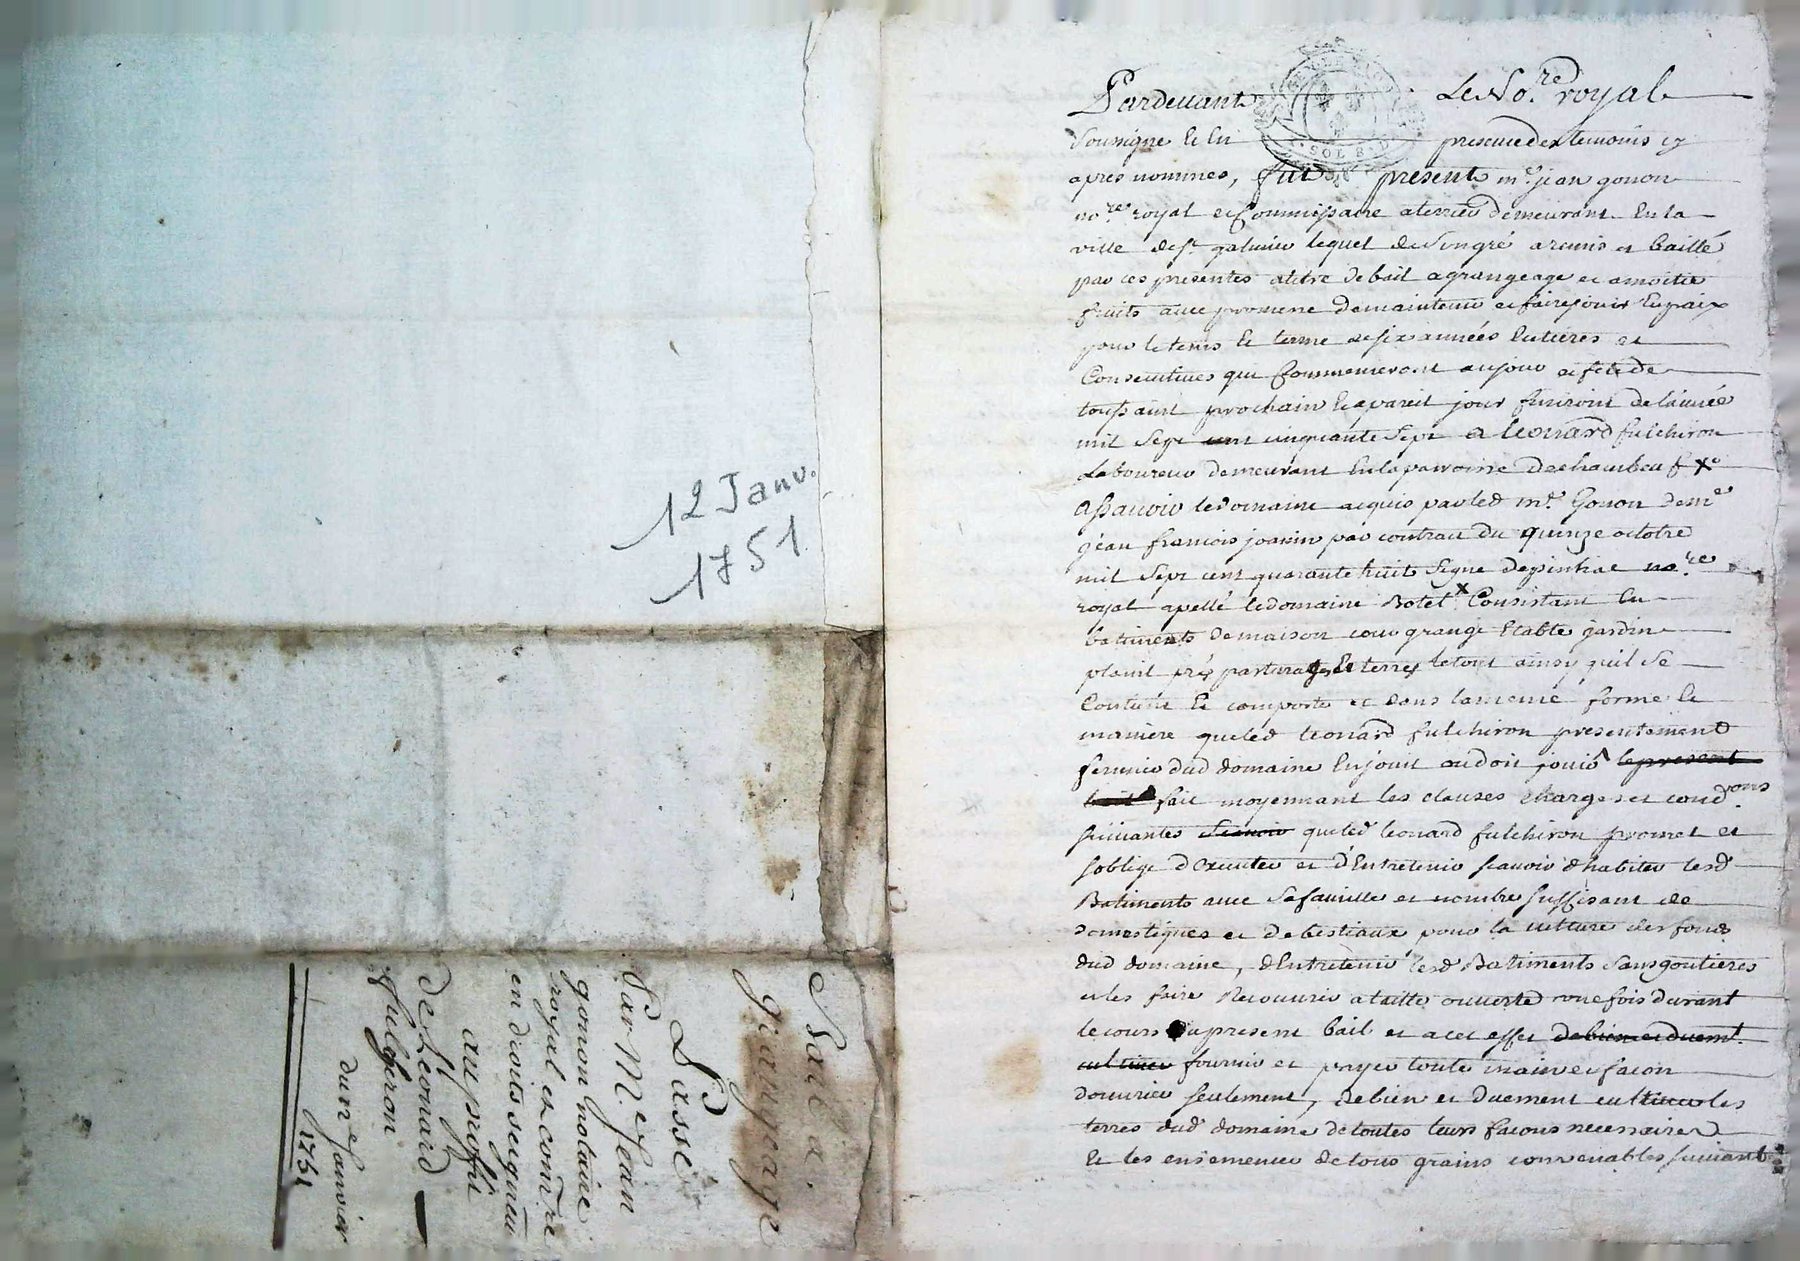 12 Janv.
1751
Bail a
Grangeage
Passé
Par Me Jean
gonon notaire
royal et comre
en droits seigneu
au profit
de Leonard
fulcheron
du Janvier
1751
Pardevant Le No.re royal
Soussigne et En presence des temoins cy
apres nommes, fut present me jean gonon
no.re royal et Commissaire a terrier demeurant En la
ville de st galmier lequel de son gré a remis et baillé
par ces presentes a titre de bail a grangeage et a moitie
fruits avec promesse de maintenir et faire jouir En paix
pour le tems et terme de six années Entieres et
Consecutives qui Commenceront au jour et fete de
toussaint prochain Et a pareil jour finiront de l'année
mil sept cent cinquante sept a leonard fulchiron
Laboureur demeurant En la paroisse de chambeuf
Assavoir le domaine acquis par led me Gonon de me
jean francois joanin par contract du quinze octobre
mil sept cent quarante huit signe depinhac no.re
royal apellé le domaine Botel x Consistant En
batiments de maison cour grange Etable jardin
prés pasturages Et terres le tout ainsy quil se
Contient Et comporte et dans la meme forme Et
maniere que led leonard fulchiron presentement
fermier dud domaine En jouit ou doit jouir le present
bail fait moyennant les clauses charges et condons
suivantes scavoir que led leonard fulchiron promet et
soblige d'Executer et d'Entretenir scavoir d'habiter lesd
Batiments avec sa famille et nombre suffisant de
domestiques et de bestiaux pour la culture des fonds
dud domaine, d'Entretenir lesd Batiments sans goutieres
et les faire Recouvrir a taille ouverte une fois durant
le cours du present bail et a cet effet de bien et duemt.
cultiver fournir et payer toute main et facon
douvrier seulement, de bien et duement cultiver les
terres dud domaine de toutes leurs facons necessaires
Et les ensemencer de tous grains convenables suivant